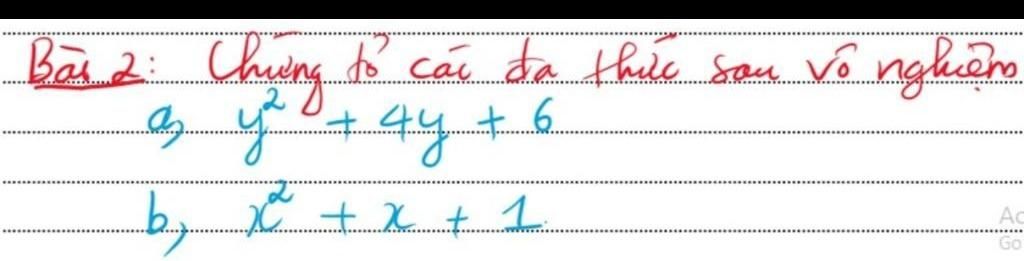 Bài 2: Chứng tỏ các đa thức sau vô nghiệm
a, y² + 4y + 6
b, x² + x + 1
Ac
Go